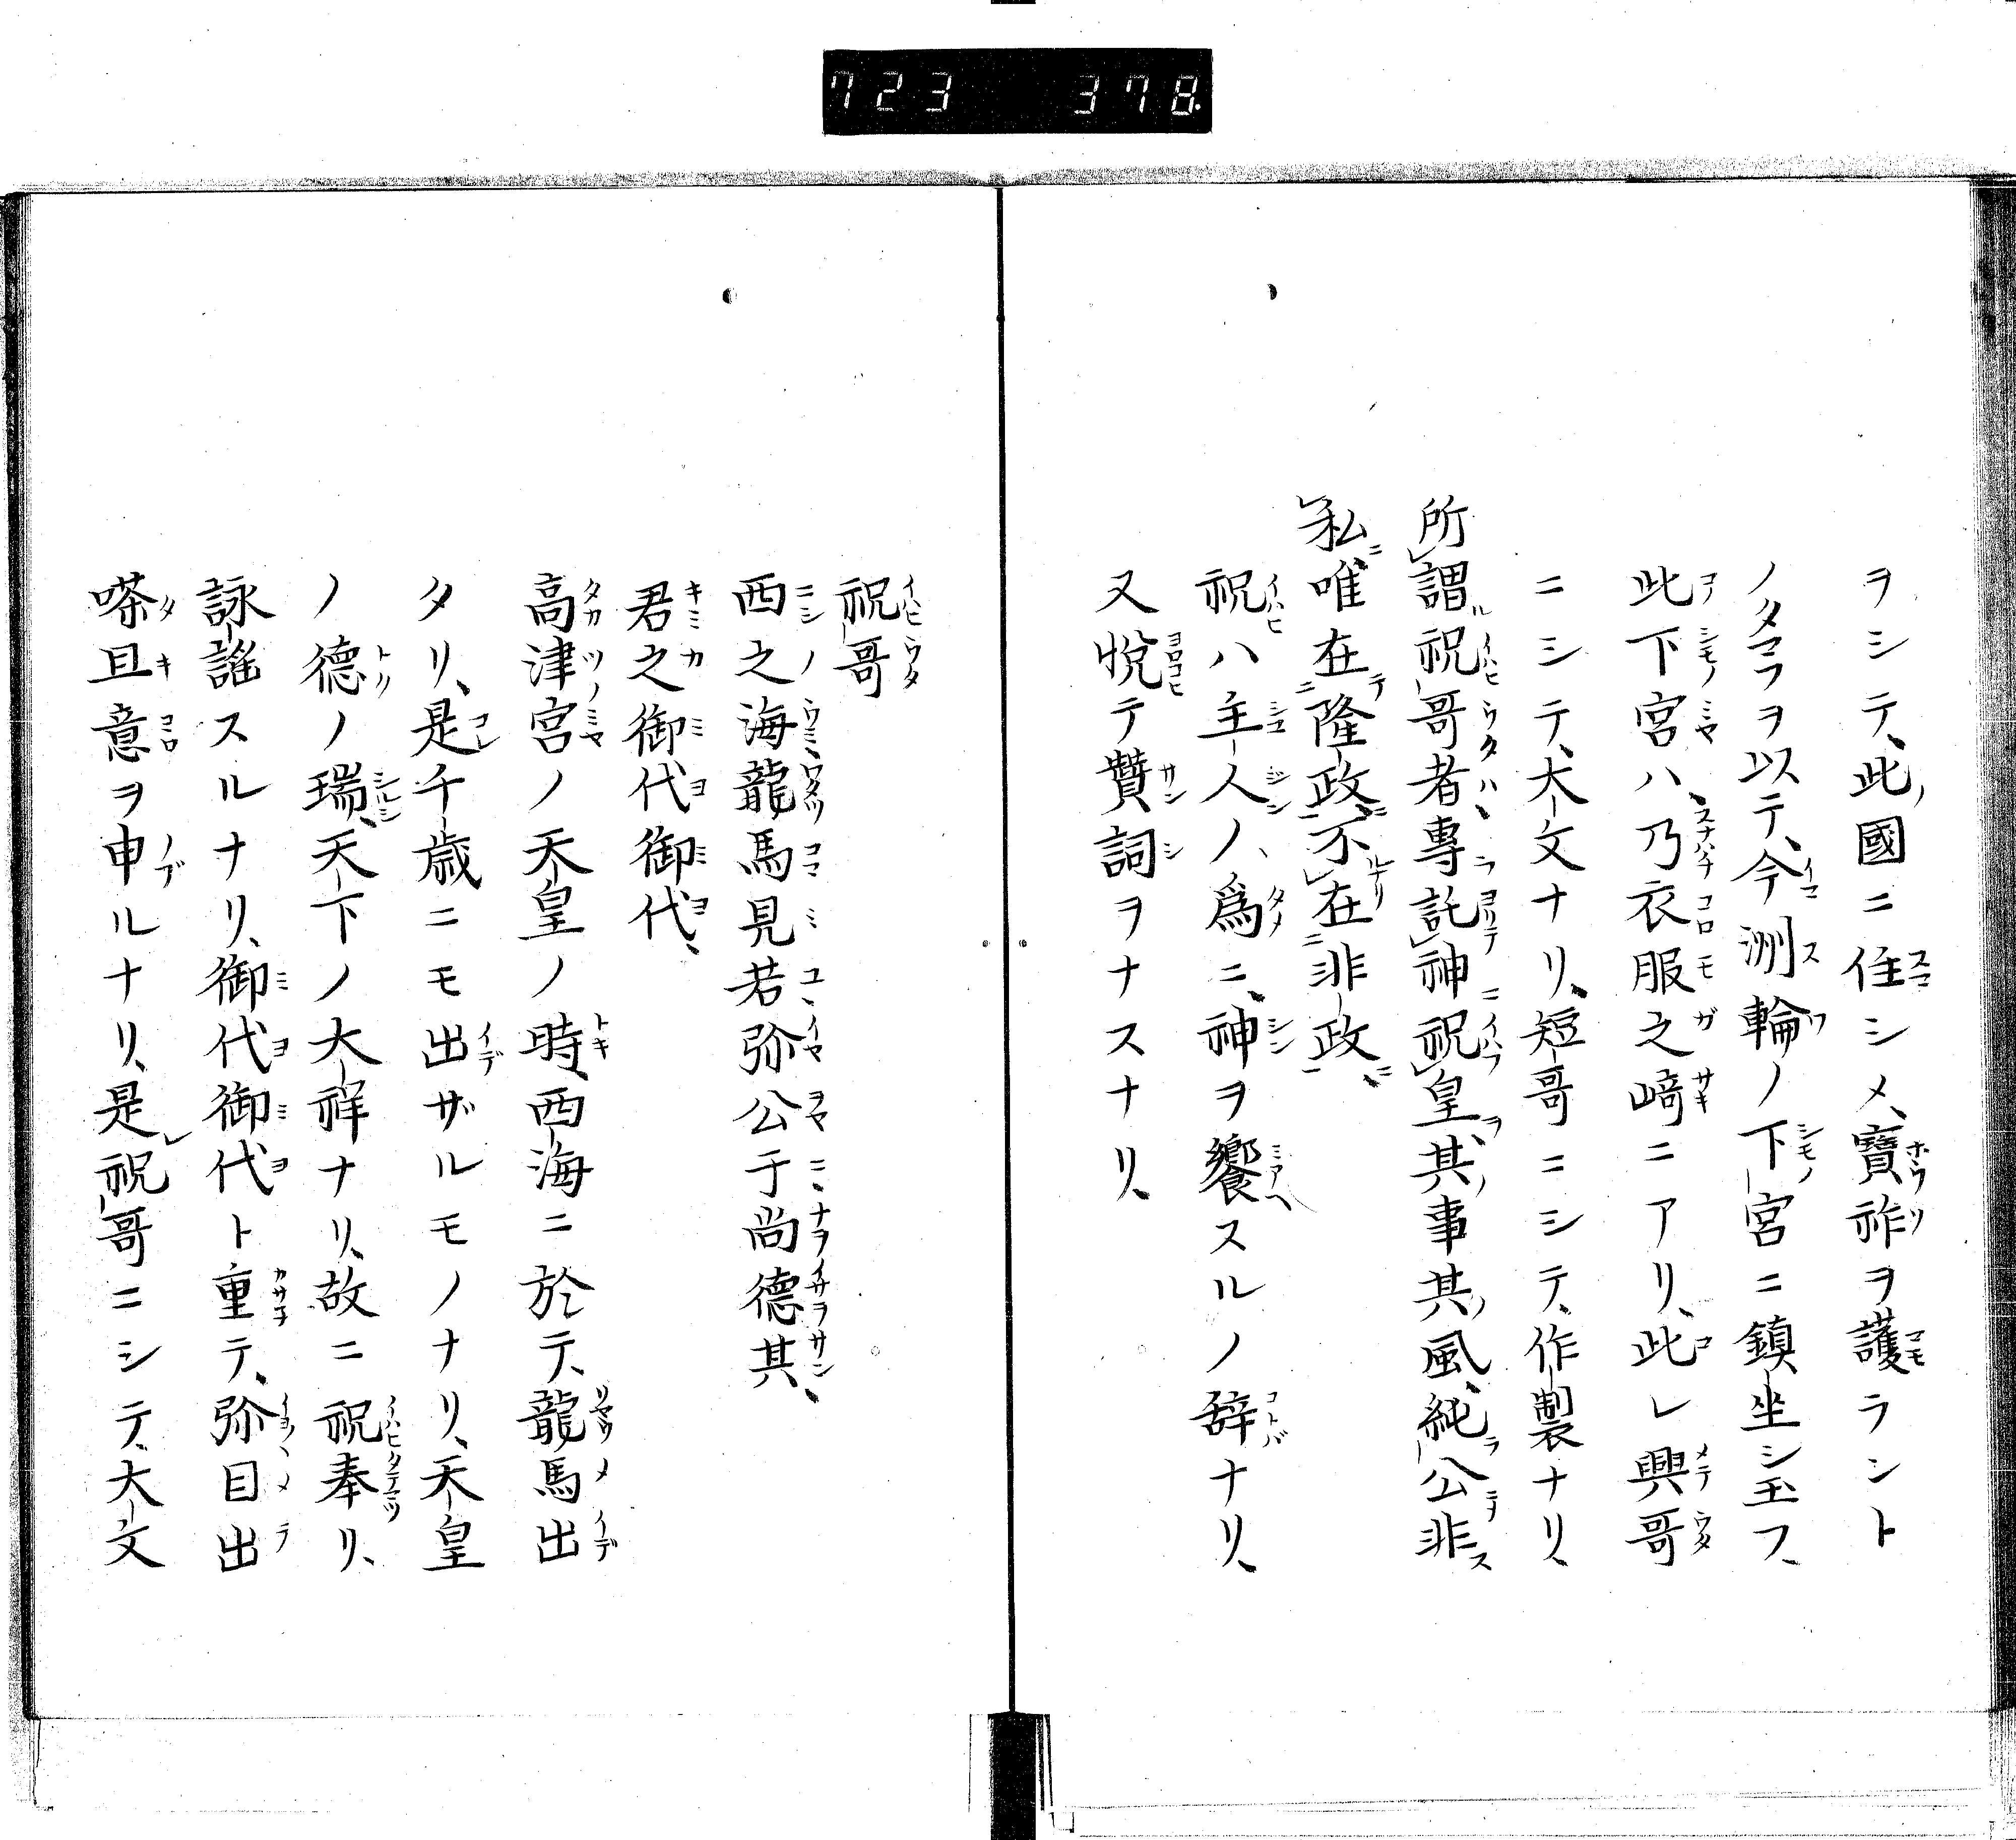 723 378
ヲシテ、此ノ國ニ住シメ、寶祚ヲ護ラント
ノタマフヲ以テ、今洲輪ノ下宮ニ鎮坐シ玉フ、
此下宮ハ、乃衣服之﨑ニアリ、此レ興哥
ニシテ、大文ナリ、短哥ニシテ、作製ナリ、
所謂祝哥者、專託神祝皇、其事其風、純公非
私、唯在隆政、不在非政、
祝ハ主人ノ、爲ニ、神ヲ饗スルノ辞ナリ、
又悅テ贊詞ヲナスナリ、
祝哥
西之海龍馬見若弥公于尚德其、
君之御代御代、
高津宮ノ天皇ノ時、西海ニ於テ、龍馬出
タリ、是千歳ニモ出ザルモノナリ、天皇
ノ德ノ瑞、天下ノ大祥ナリ、故ニ祝奉リ、
詠謠スルナリ、御代御代ト重テ、弥目出
嗏且意ヲ申ルナリ、是レ祝哥ニシテ、大文